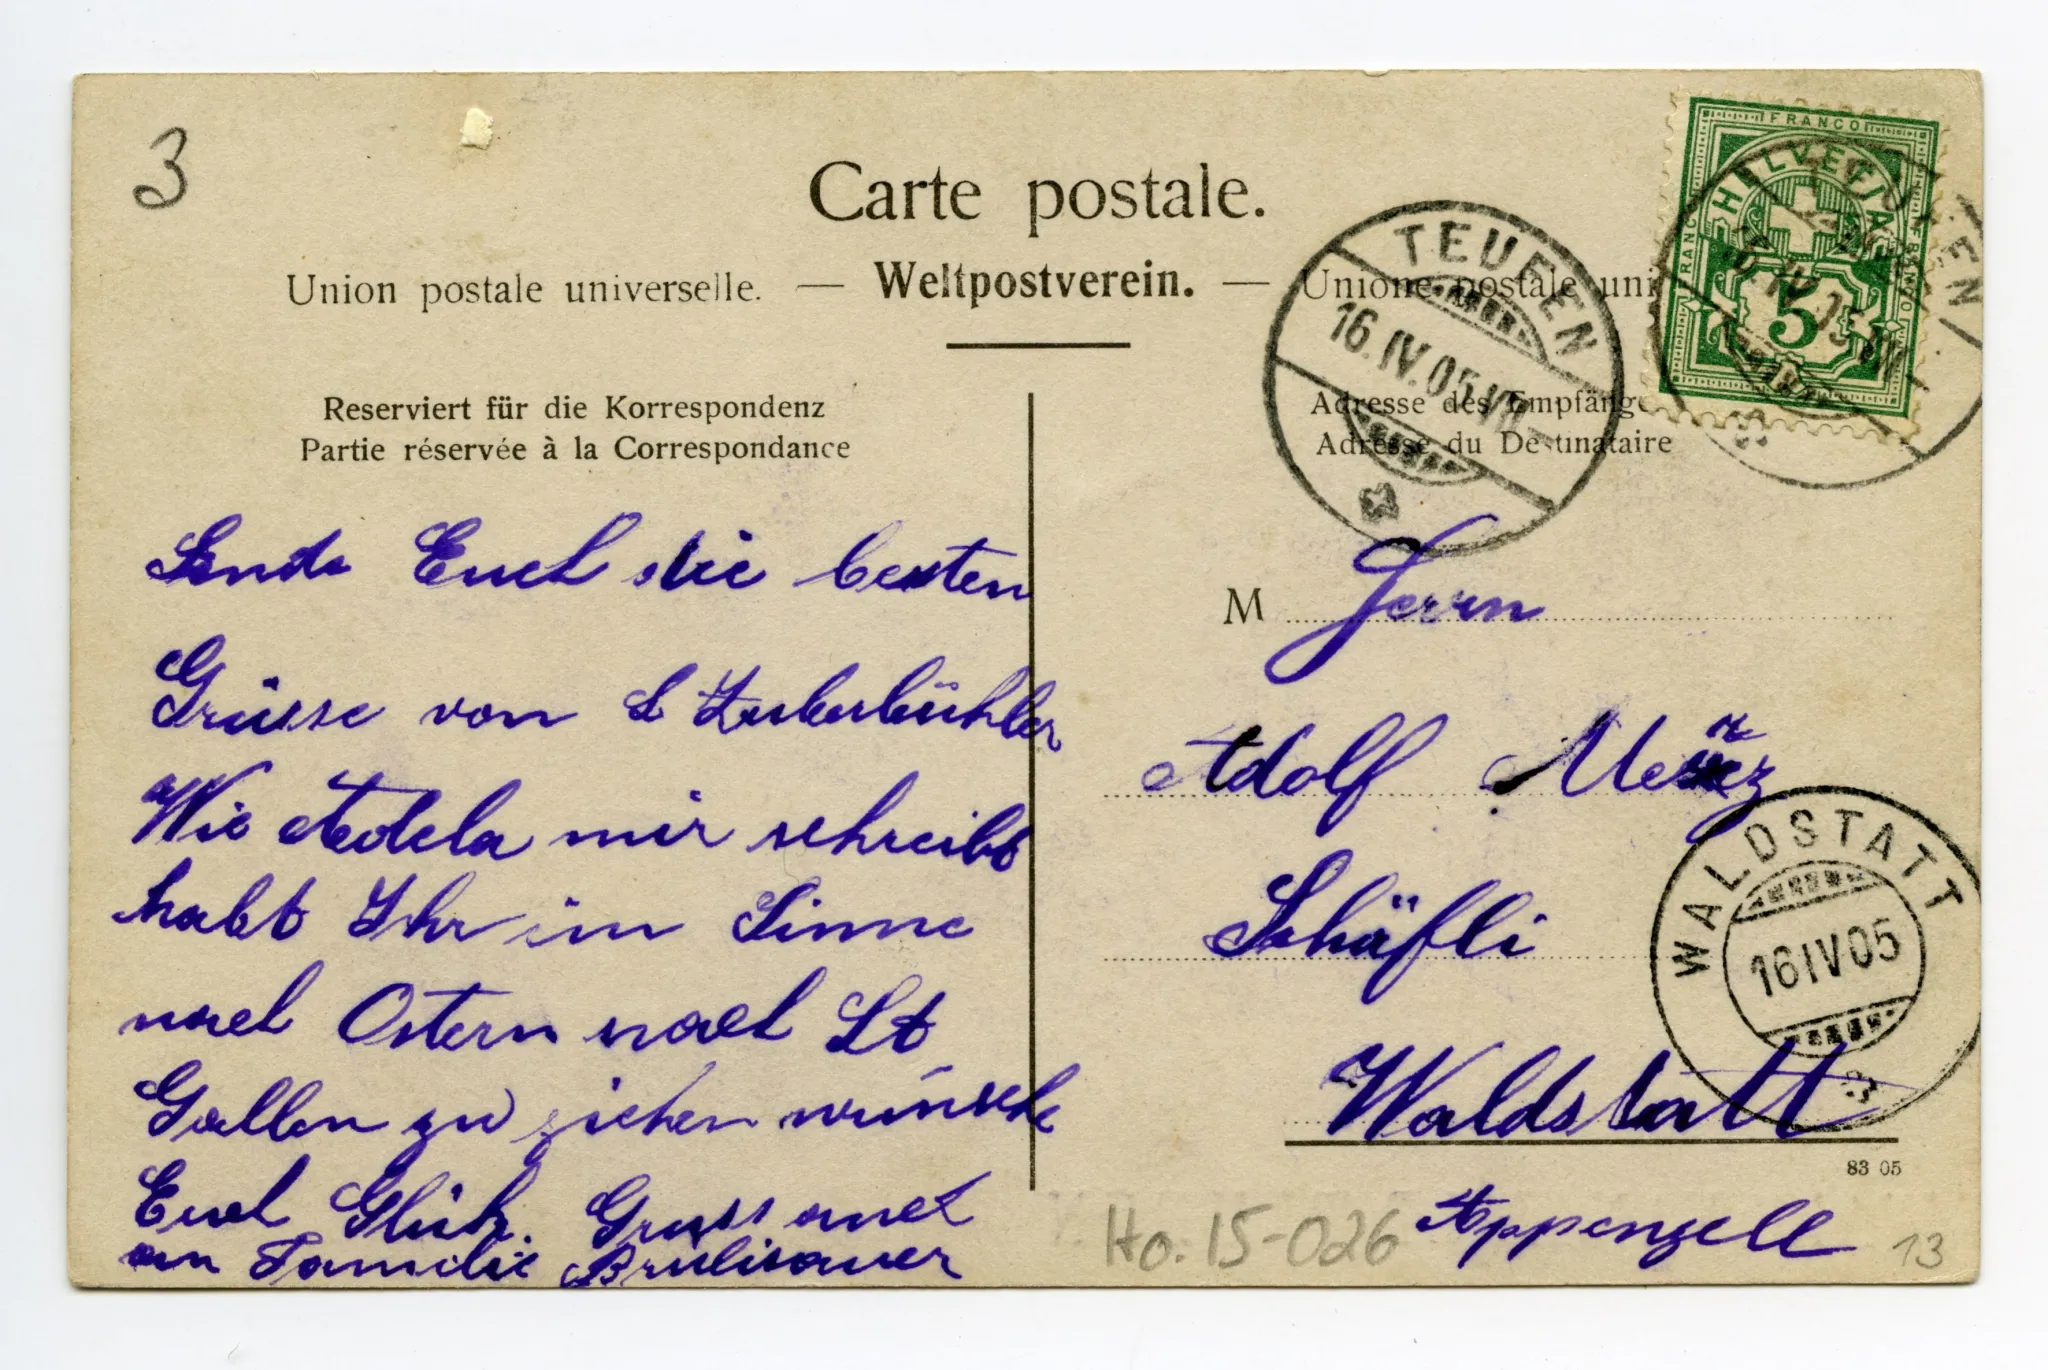 3
Carte postale.
Union postale universelle. — Weltpostverein. — Unione postale uni
Reserviert für die Korrespondenz
Partie réservée à la Correspondance
Sende Euch die besten
Grüsse von L Zuberbühler
Wie Adela mir schreibt
habt Ihr im Sinne
nach Ostern nach St
Gallen zu ziehen wünsche
Euch Glück. Gruss auch
an Familie Brülisauer
FRANCO
HELVETIA
FRANCO
5
TEUFEN
16.IV.05.VII-
TEUFEN
16.IV.05.VII-
Adresse des Empfänge
Adresse du Destinataire
M Herrn
Adolf
Schäfli
Waldstatt
Appenzell
WALDSTATT
16 IV 05
83 05
Ho. 15-026
13